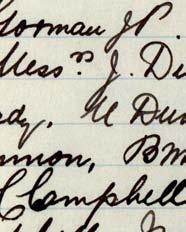 Gorman J.P.
Messrs. J. Du
dy, M Dun
nnon, Bm
C Campbell